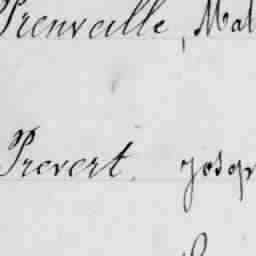 Prenveille, Mat
Prevert. Josep